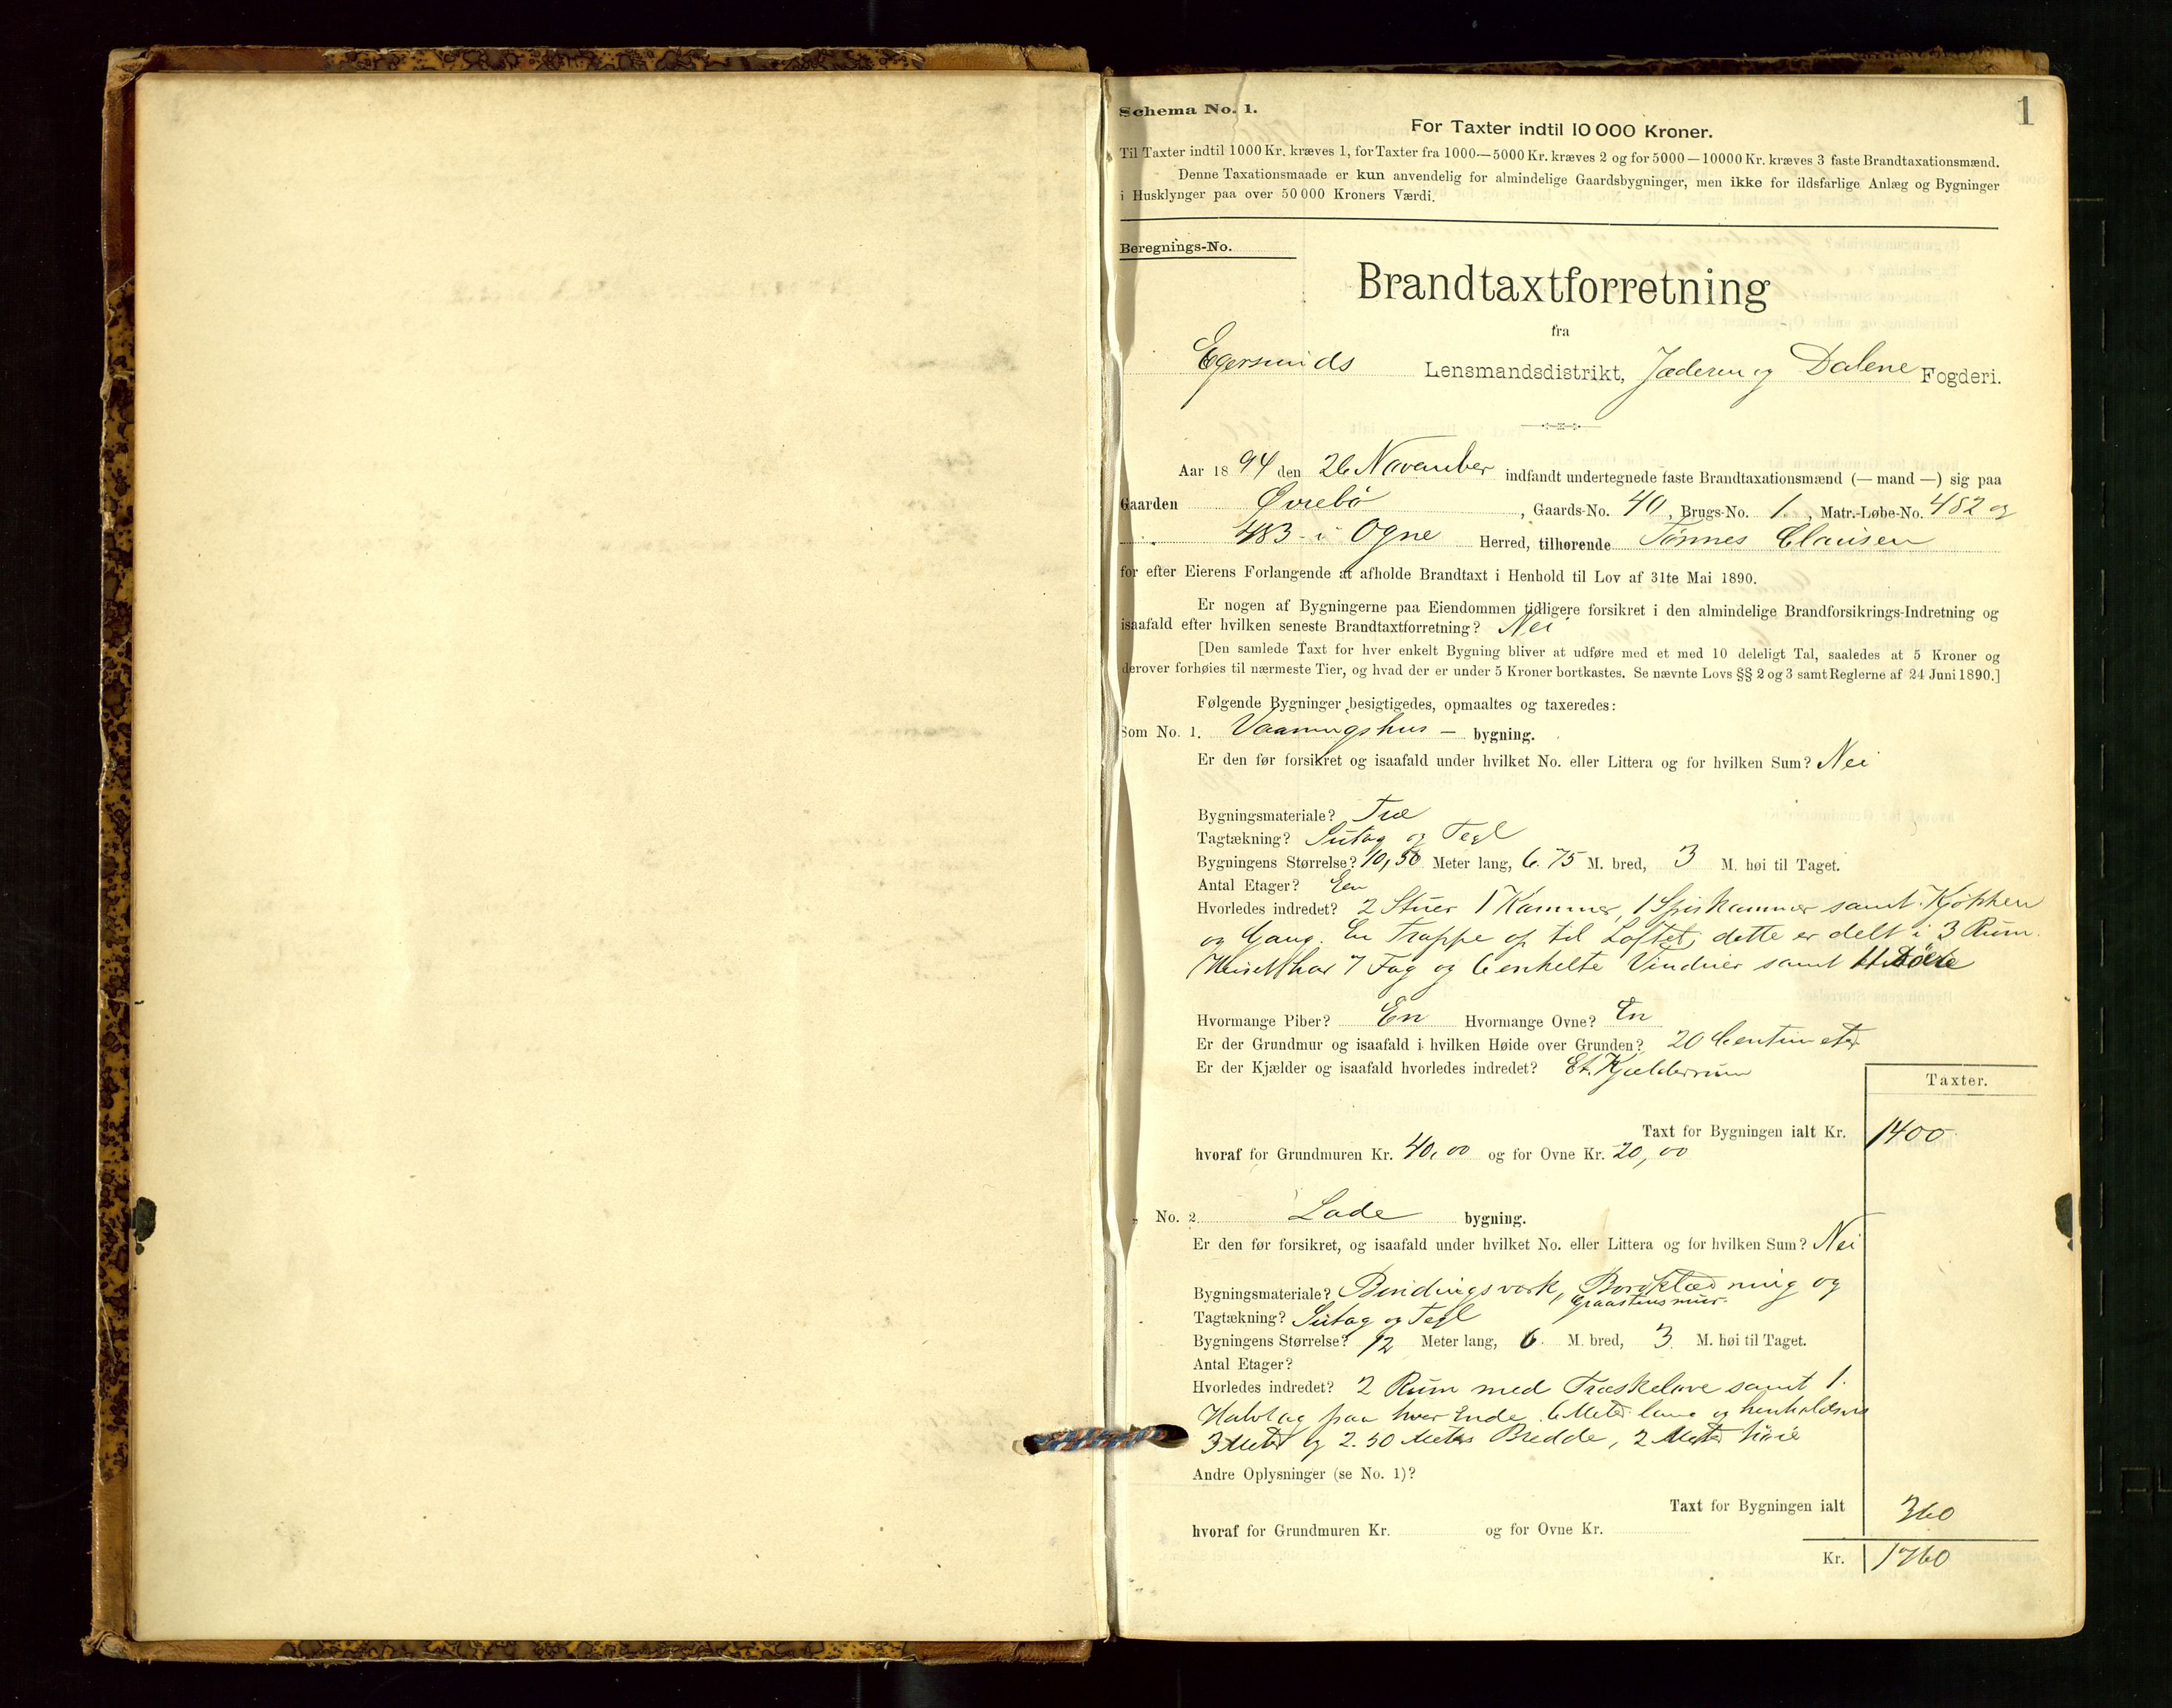 1
Schema No. 1.
For Taxter indtil 10 000 Kroner.
Til Taxter indtil 1000 Kr. kræves 1, for Taxter fra 1000—5000 Kr. kræves 2 og for 5000—10000 Kr. kræves 3 faste Brandtaxationsmænd.
Denne Taxationsmaade er kun anvendelig for almindelige Gaardsbygninger, men ikke for ildsfarlige Anlæg og Bygninger
i Husklynger paa over 50 000 Kroners Værdi.
Beregnings-No.
Brandtaxtforretning
fra
Egersunds Lensmandsdistrikt, Jæderen og Dalene Fogderi.
Aar 1894 den 26 November indfandt undertegnede faste Brandtaxationsmænd (— mand —) sig paa
Gaarden Øvrebö, Gaards-No. 40, Brugs-No. 1, Matr.-Løbe-No. 482 og
483 i Ogne Herred, tilhørende Tønnes Clausen
for efter Eierens Forlangende at afholde Brandtaxt i Henhold til Lov af 31te Mai 1890.
Er nogen af Bygningerne paa Eiendommen tidligere forsikret i den almindelige Brandforsikrings-Indretning og
isaafald efter hvilken seneste Brandtaxtforretning? Nei
[Den samlede Taxt for hver enkelt Bygning bliver at udføre med et med 10 deleligt Tal, saaledes at 5 Kroner og
derover forhøies til nærmeste Tier, og hvad der er under 5 Kroner bortkastes. Se nævnte Lovs §§ 2 og 3 samt Reglerne af 24 Juni 1890.]
Følgende Bygninger besigtigedes, opmaaltes og taxeredes:
Som No. 1. Vaaningshus — bygning.
Er den før forsikret og isaafald under hvilket No. eller Littera og for hvilken Sum? Nei
Bygningsmateriale? Træ
Tagtækning? Sutag og Tegl
Bygningens Størrelse? 10,50 Meter lang, 6.75 M. bred, 3 M. høi til Taget.
Antal Etager? Een
Hvorledes indredet? 2 Stuer 1 Kammer, 1 Spiskammer samt Kjökken
og Gang. En Trappe op til Loftet, dette er delt i 3 Rum.
Huset har 7 Fag og 6 enkelte Vinduer samt 11 Döre
Hvormange Piber? En Hvormange Ovne? En
Er der Grundmur og isaafald i hvilken Høide over Grunden? 20 Centimeter
Er der Kjælder og isaafald hvorledes indredet? Et Kjælderrum
Taxter.
Taxt for Bygningen ialt Kr. 1400
hvoraf for Grundmuren Kr. 40,00 og for Ovne Kr. 20,00
" No. 2. Lade bygning.
Er den før forsikret, og isaafald under hvilket No. eller Littera og for hvilken Sum? Nei
Bygningsmateriale? Bindingsværk, Bordklædning og
Graastensmur.
Tagtækning? Sutag og Tegl
Bygningens Størrelse? 12 Meter lang, 6 M. bred, 3 M. høi til Taget.
Antal Etager?
Hvorledes indredet? 2 Rum med Træskelave samt 1
Halvtag paa hver Ende 6 Meter lang og henholdsvis
3 Meter og 2.50 Meters Bredde, 2 Meter höie
Andre Oplysninger (se No. 1)?
Taxt for Bygningen ialt 360
hvoraf for Grundmuren Kr. og for Ovne Kr.
Kr. 1760